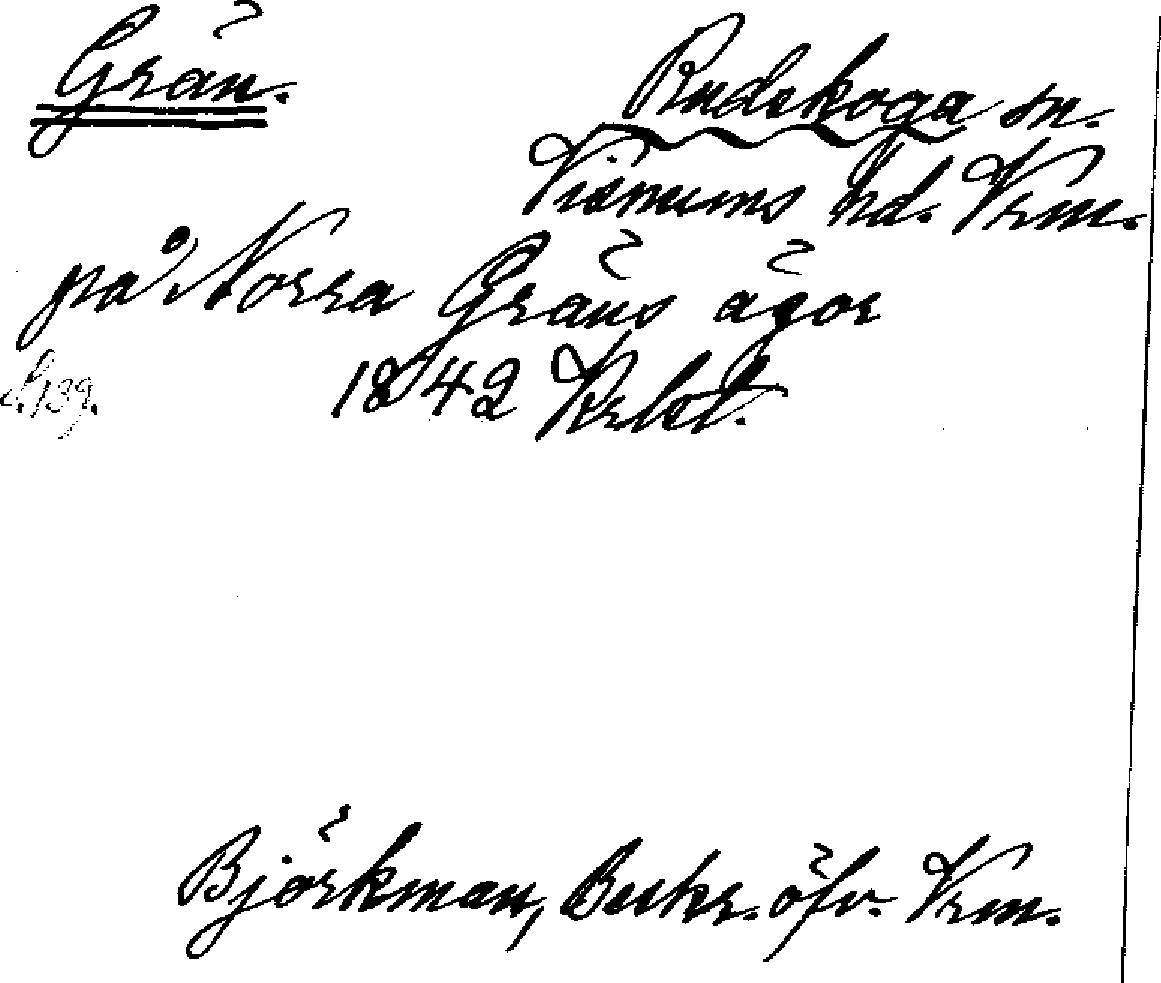 Grän.
Rudskoga sn.
Visnums hd. Vrm.
på Norra Gräns ägor
s. 139. 1842 Krbst.
Björkman, Beskr. öfv. Vrm.